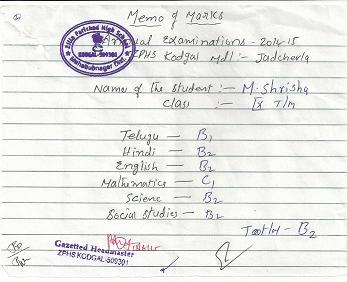 Memo of Marks
Zilla Parishad High School
KODGAL-509301
Mahabubnagar Dist.
Annual Examinations - 2014-15
ZPHS Kodgal Mdl :- Jadcherla
Name of the student :- M. Shrisha
Class :- IX T/m
Telugu - B1
Hindi - B2
English - B2
Mathematics - C1
Science - B2
Social Studies - B2
Tootlal - B2
Gazetted Headmaster
ZPHS KODGAL-509301